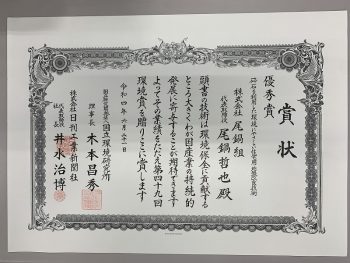 賞状
優秀賞
株式会社 尾鍋組
代表取締役 尾鍋哲也殿
頭書の技術は環境保全に貢献する
ところ大きくわが国産業の持続的
発展に寄与することが期待できます
よってその業績をたたえ第四十九回
環境賞を贈りここに賞します
令和四年六月
国立環境研究所
理事長 木本昌秀
株式会社 日刊工業新聞社
代表取締役社長 井水治博